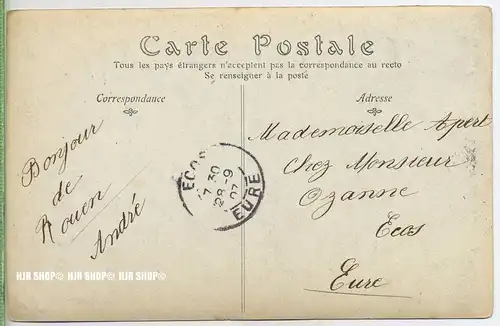 Carte Postale
Tous les pays étrangers n'acceptent pas la correspondance au recto
Se renseigner à la poste
Correspondance
Adresse
Bonjour
de
Rouen
André
ECOS
7 30
28 -9
07
EURE
Mademoiselle Apert
Chez Monsieur
Ozanne
Ecos
Eure
HJR SHOP© HJR SHOP© HJR SHOP©